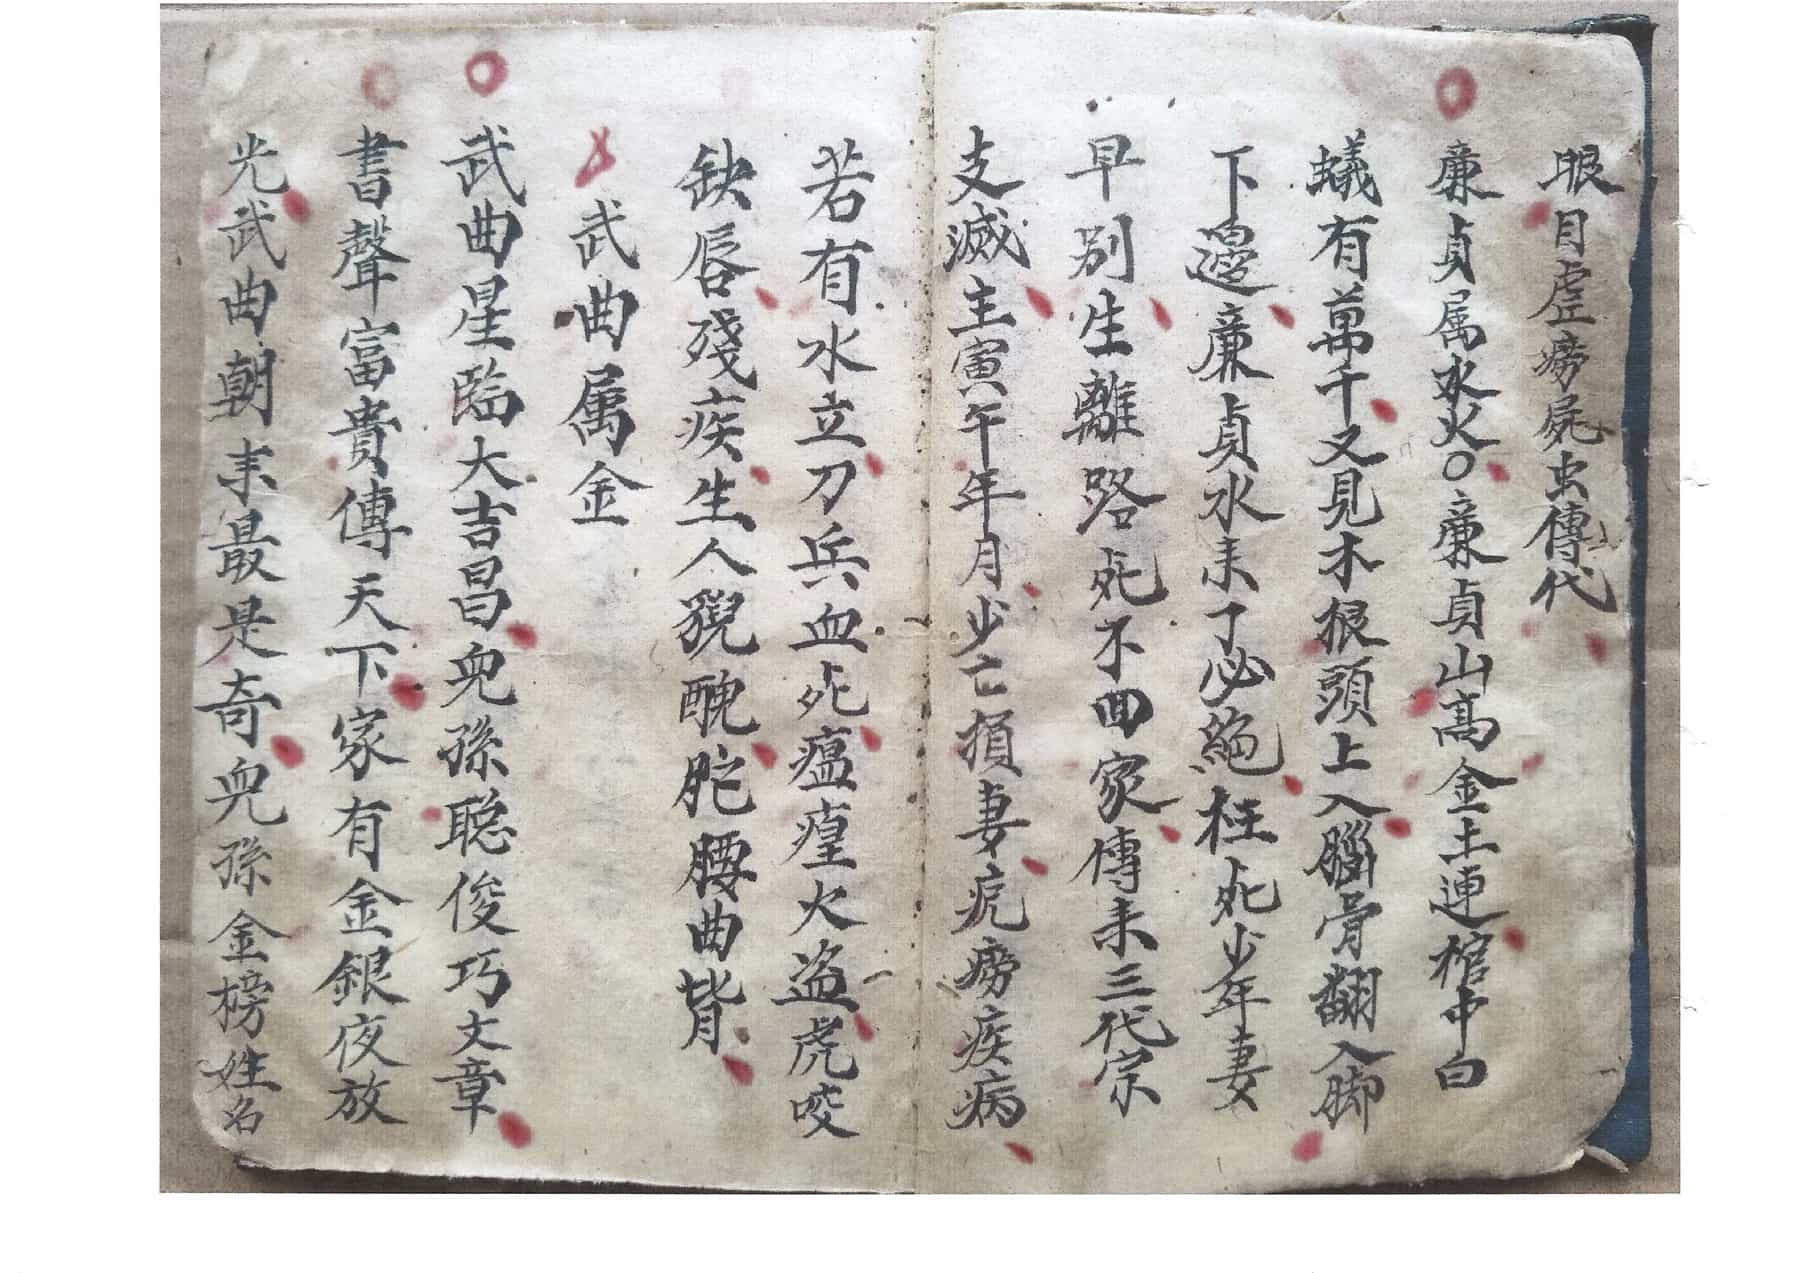 眼目虛癆屍虫傳代
廉貞属水火○廉貞山高金土連棺中白
蟻有萬千又見木根頭上入腦骨翻入脚
下邊廉貞水来了必絕枉死少年妻
早别生離路死不回家傳来三代宗
支滅主寅午年月少亡損妻疣癆疾病
若有水立刀兵血死瘟㾮火盗虎咬
缺唇殘疾生人猊醜陀腰曲背
武曲属金
武曲星臨大吉昌兒孫聪俊巧文章
書聲富貴傳天下家有金銀夜放
光武曲朝来最是奇兒孫金榜姓名